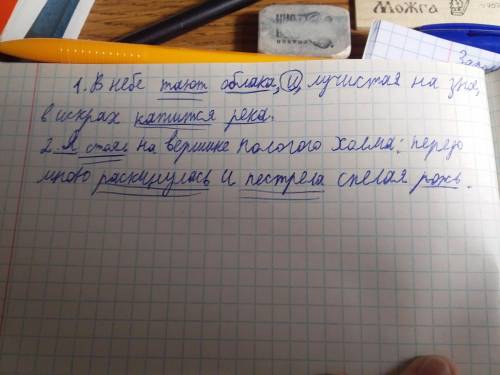 МОЖГА
1. В небе тают облака, и, лучистая на зно,
в искрах катится река.
2. Я стоял на вершине пологого холма; передо
мною раскинулась и пестрела спелая рожь.